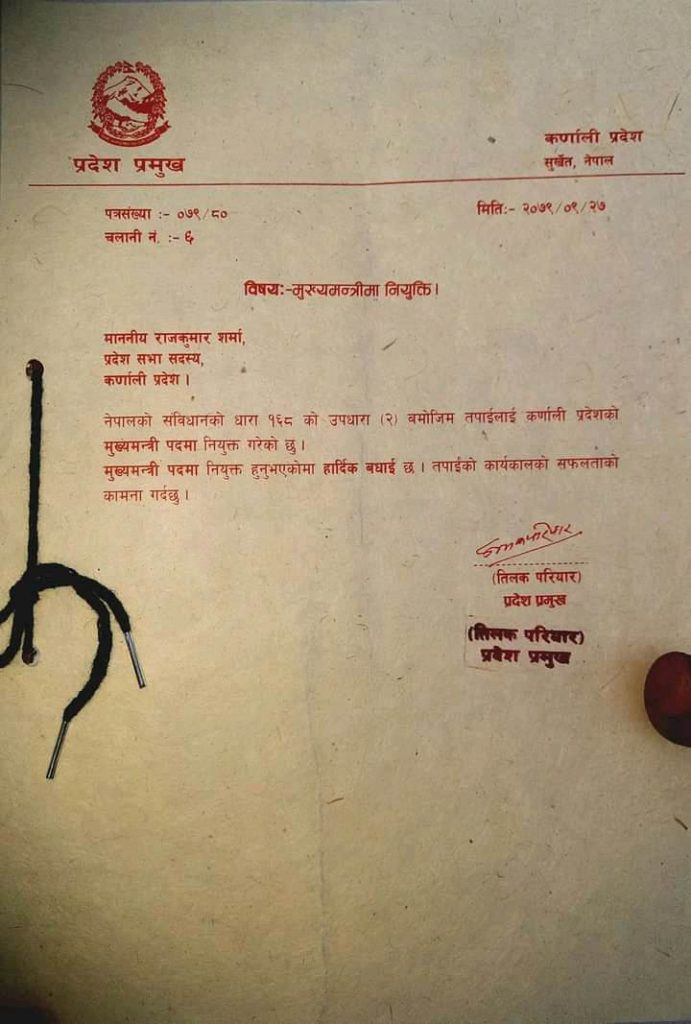 प्रदेश प्रमुख
कर्णाली प्रदेश
सुर्खेत, नेपाल
पत्रसंख्या :- ०७९/८०
मिति:- २०७९/०९/२७
चलानी नं. :- ६
विषय:-मुख्यमन्त्रीमा नियुक्ति।
माननीय राजकुमार शर्मा,
प्रदेश सभा सदस्य,
कर्णाली प्रदेश ।
नेपालको संविधानको धारा १६८ को उपधारा (२) बमोजिम तपाईलाई कर्णाली प्रदेशको
मुख्यमन्त्री पदमा नियुक्त गरेको छु ।
मुख्यमन्त्री पदमा नियुक्त हुनुभएकोमा हार्दिक बधाई छ । तपाईको कार्यकालको सफलताको
कामना गर्दछु ।
(तिलक परियार)
प्रदेश प्रमुख
(तिलक परियार)
प्रदेश प्रमुख